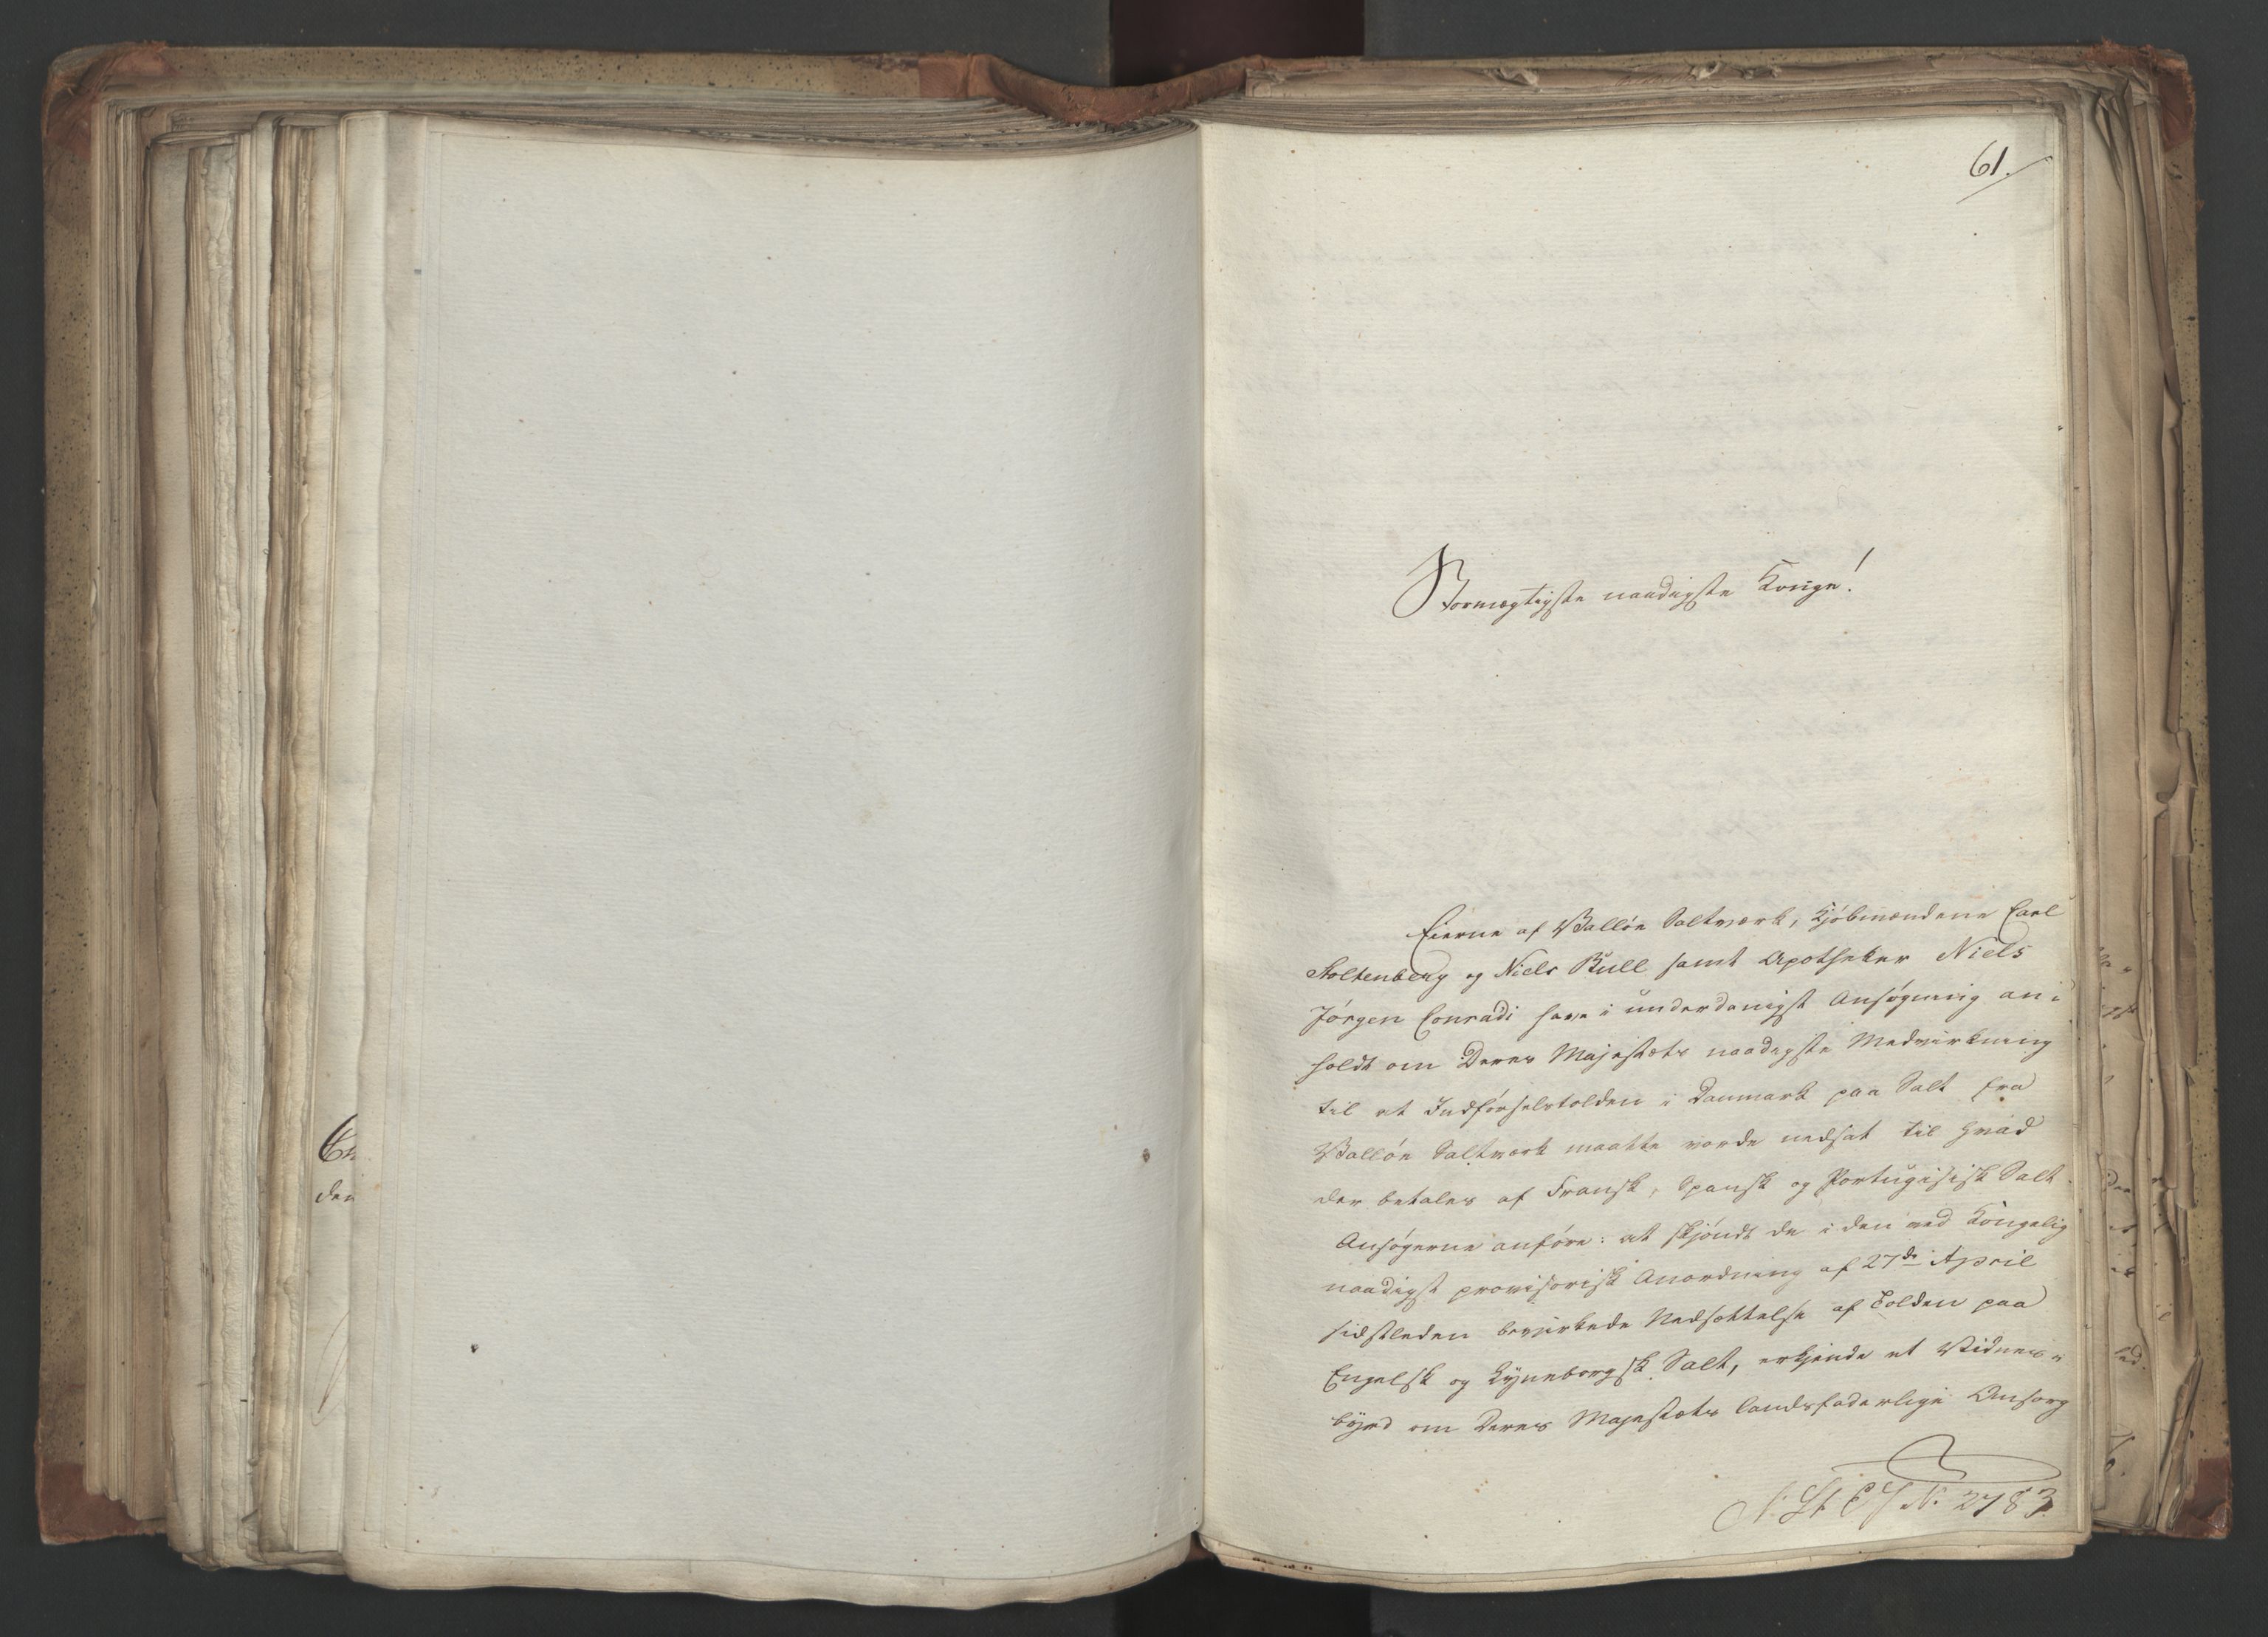 61.
Stormægtigste naadigste Konge!
Eierne af Valløe Saltværk, Kjöbmændene Carl
Stoltenberg og Niels Bull samt Apotheker Niels
Jörgen Conradi have i underdanigst Ansøgning an-
holdt om Deres Majestæts naadigste Medvirkning
til at Indförselstolden i Danmark paa Salt fra
Valløe Saltværk maatte vorde nedsat til hvad
der betales af Fransk, Spansk og Portugisisk Salt.
Ansøgerne anföre: at skjöndt de i den ved Kongelig
naadigst provisorisk Anordning af 27de April
sidstleden bevirkede Nedsættelse af Tolden paa
Engelsk og Lyneborgsk Salt, erkjende et Vidnes-
byrd om Deres Majestæts landsfaderlige Omsorg
No 2783
den